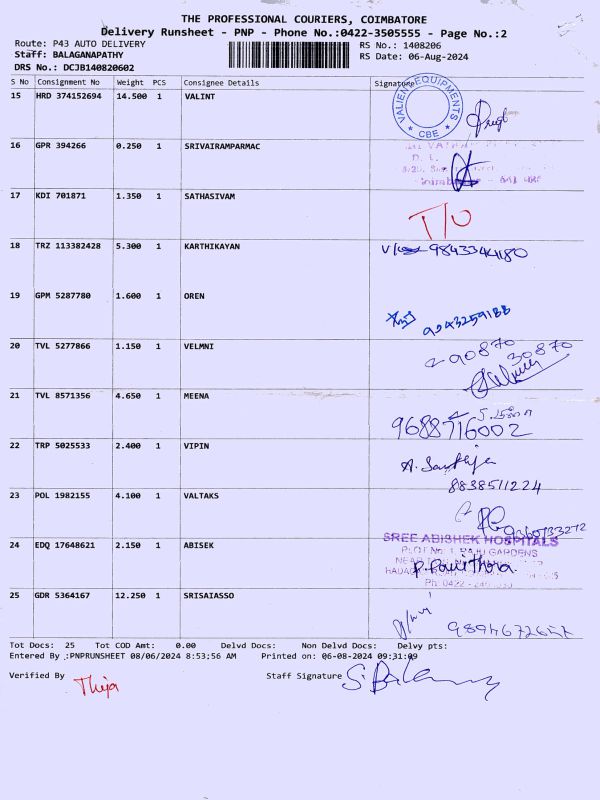 THE PROFESSIONAL COURIERS, COIMBATORE
Delivery Runsheet - PNP - Phone No.:0422-3505555 - Page No.:2
Route: P43 AUTO DELIVERY
RS No.: 1408206
Staff: BALAGANAPATHY
RS Date: 06-Aug-2024
DRS No.: DCJB140820602
S No Consignment No Weight PCS Consignee Details Signature
15 HRD 374152694 14.500 1 VALINT
VALIENT EQUIPMENTS * CBE *
16 GPR 394266 0.250 1 SRIVAIRAMPARMAC
D. L.
17 KDI 701871 1.350 1 SATHASIVAM
T/O
18 TRZ 113382428 5.300 1 KARTHIKAYAN
9843344180
19 GPM 5287780 1.600 1 OREN
9943259188
20 TVL 5277866 1.150 1 VELMNI
90870 30870
21 TVL 8571356 4.650 1 MEENA
9688716002
22 TRP 5025533 2.400 1 VIPIN
8838511224
23 POL 1982155 4.100 1 VALTAKS
24 EDQ 17648621 2.150 1 ABISEK
SREE ABISHEK HOSPITALS
PLOT No. 1, RAJU GARDENS
P. Pavithra
25 GDR 5364167 12.250 1 SRISAIASSO
Tot Docs: 25 Tot COD Amt: 0.00 Delvd Docs: Non Delvd Docs: Delvy pts:
Entered By :PNPRUNSHEET 08/06/2024 8:53:56 AM Printed on: 06-08-2024 09:31:09
Verified By Staff Signature